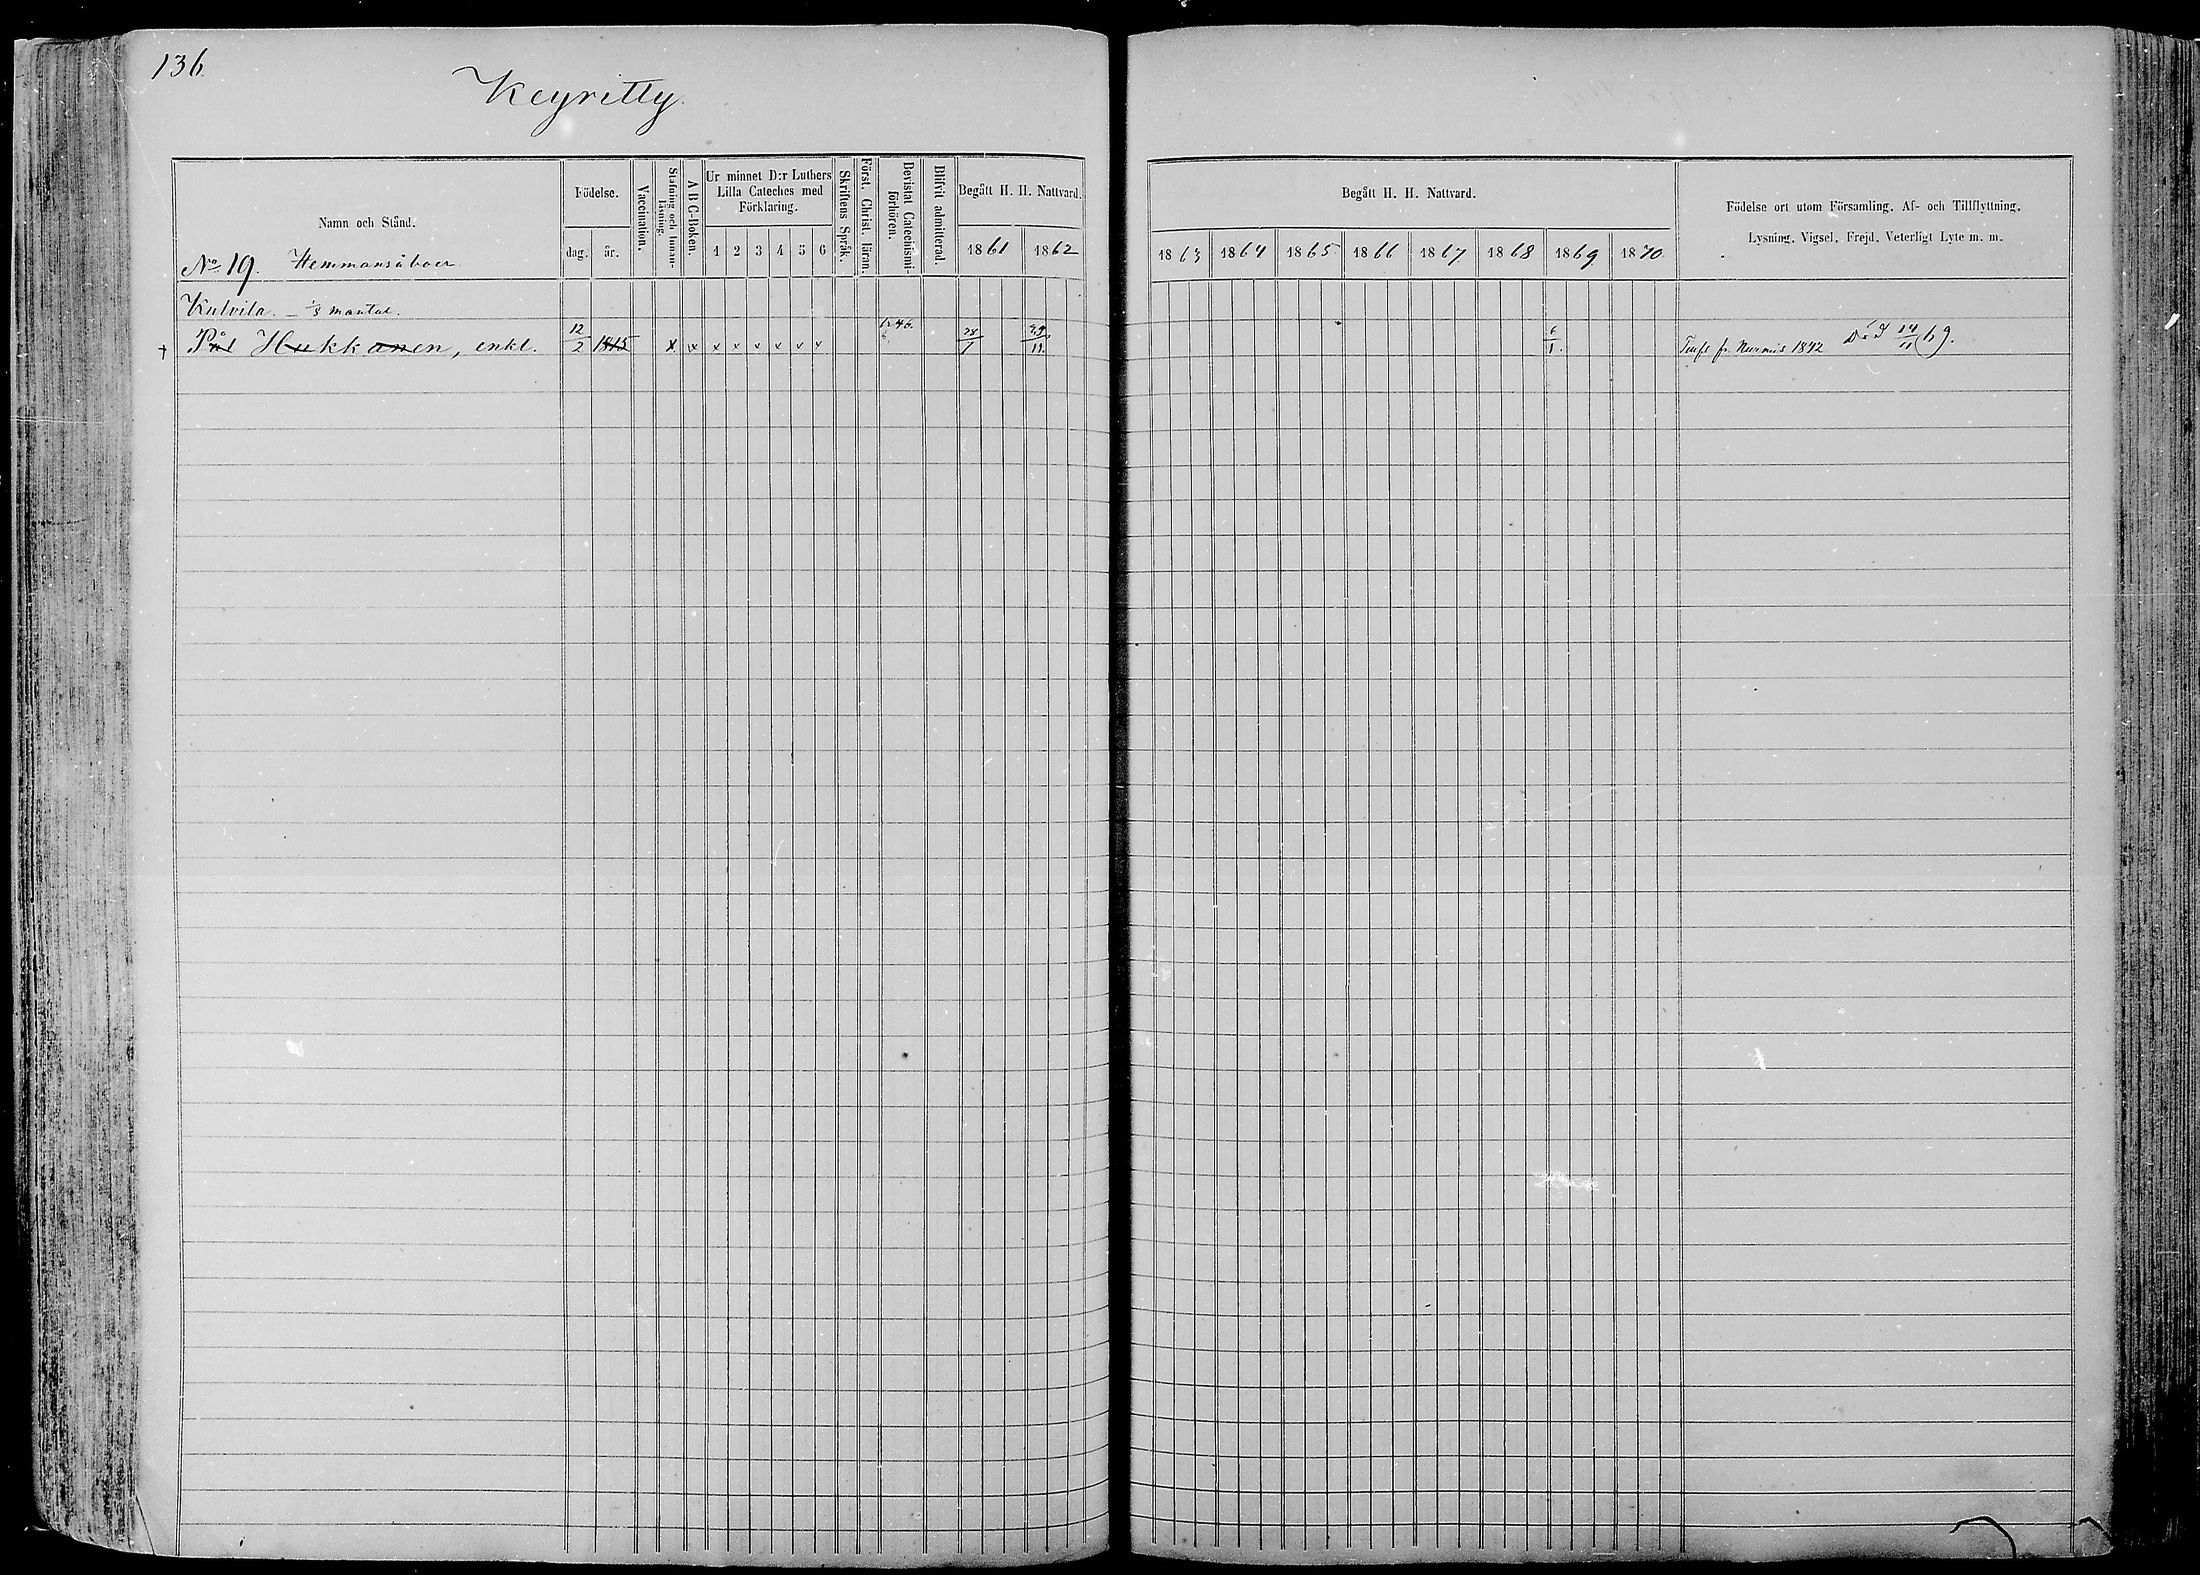 136.
Keyritty.
Namn och Stånd.
No 19. Hemmansåboer
Födelse.
dag. år.
Vaccination.
Stafning och Innanläsning.
A B C-Boken.
Ur minnet D:r Luthers Lilla Cateches med Förklaring.
1 2 3 4 5 6
Skriftens Språk.
Först. Christ. läran.
Bevistat Catechismiförhören.
Blifvit admitterad
Begått H. H. Nattvard.
1861 1862
Begått H. H. Nattvard.
1863 1864 1865 1866 1867 1868 1869 1870
Födelse ort utom Församling, Af- och Tillflyttning,
Lysning, Vigsel, Frejd, Veterligt Lyte m. m.
Kulvila. — 1/3 mantal.
+ Pål Hukkanen, enkl. 12/2 1815 x x x x x x x x 28/1 29/11. 6/1. fr. Nurmis 1842 Död 14/11 69.